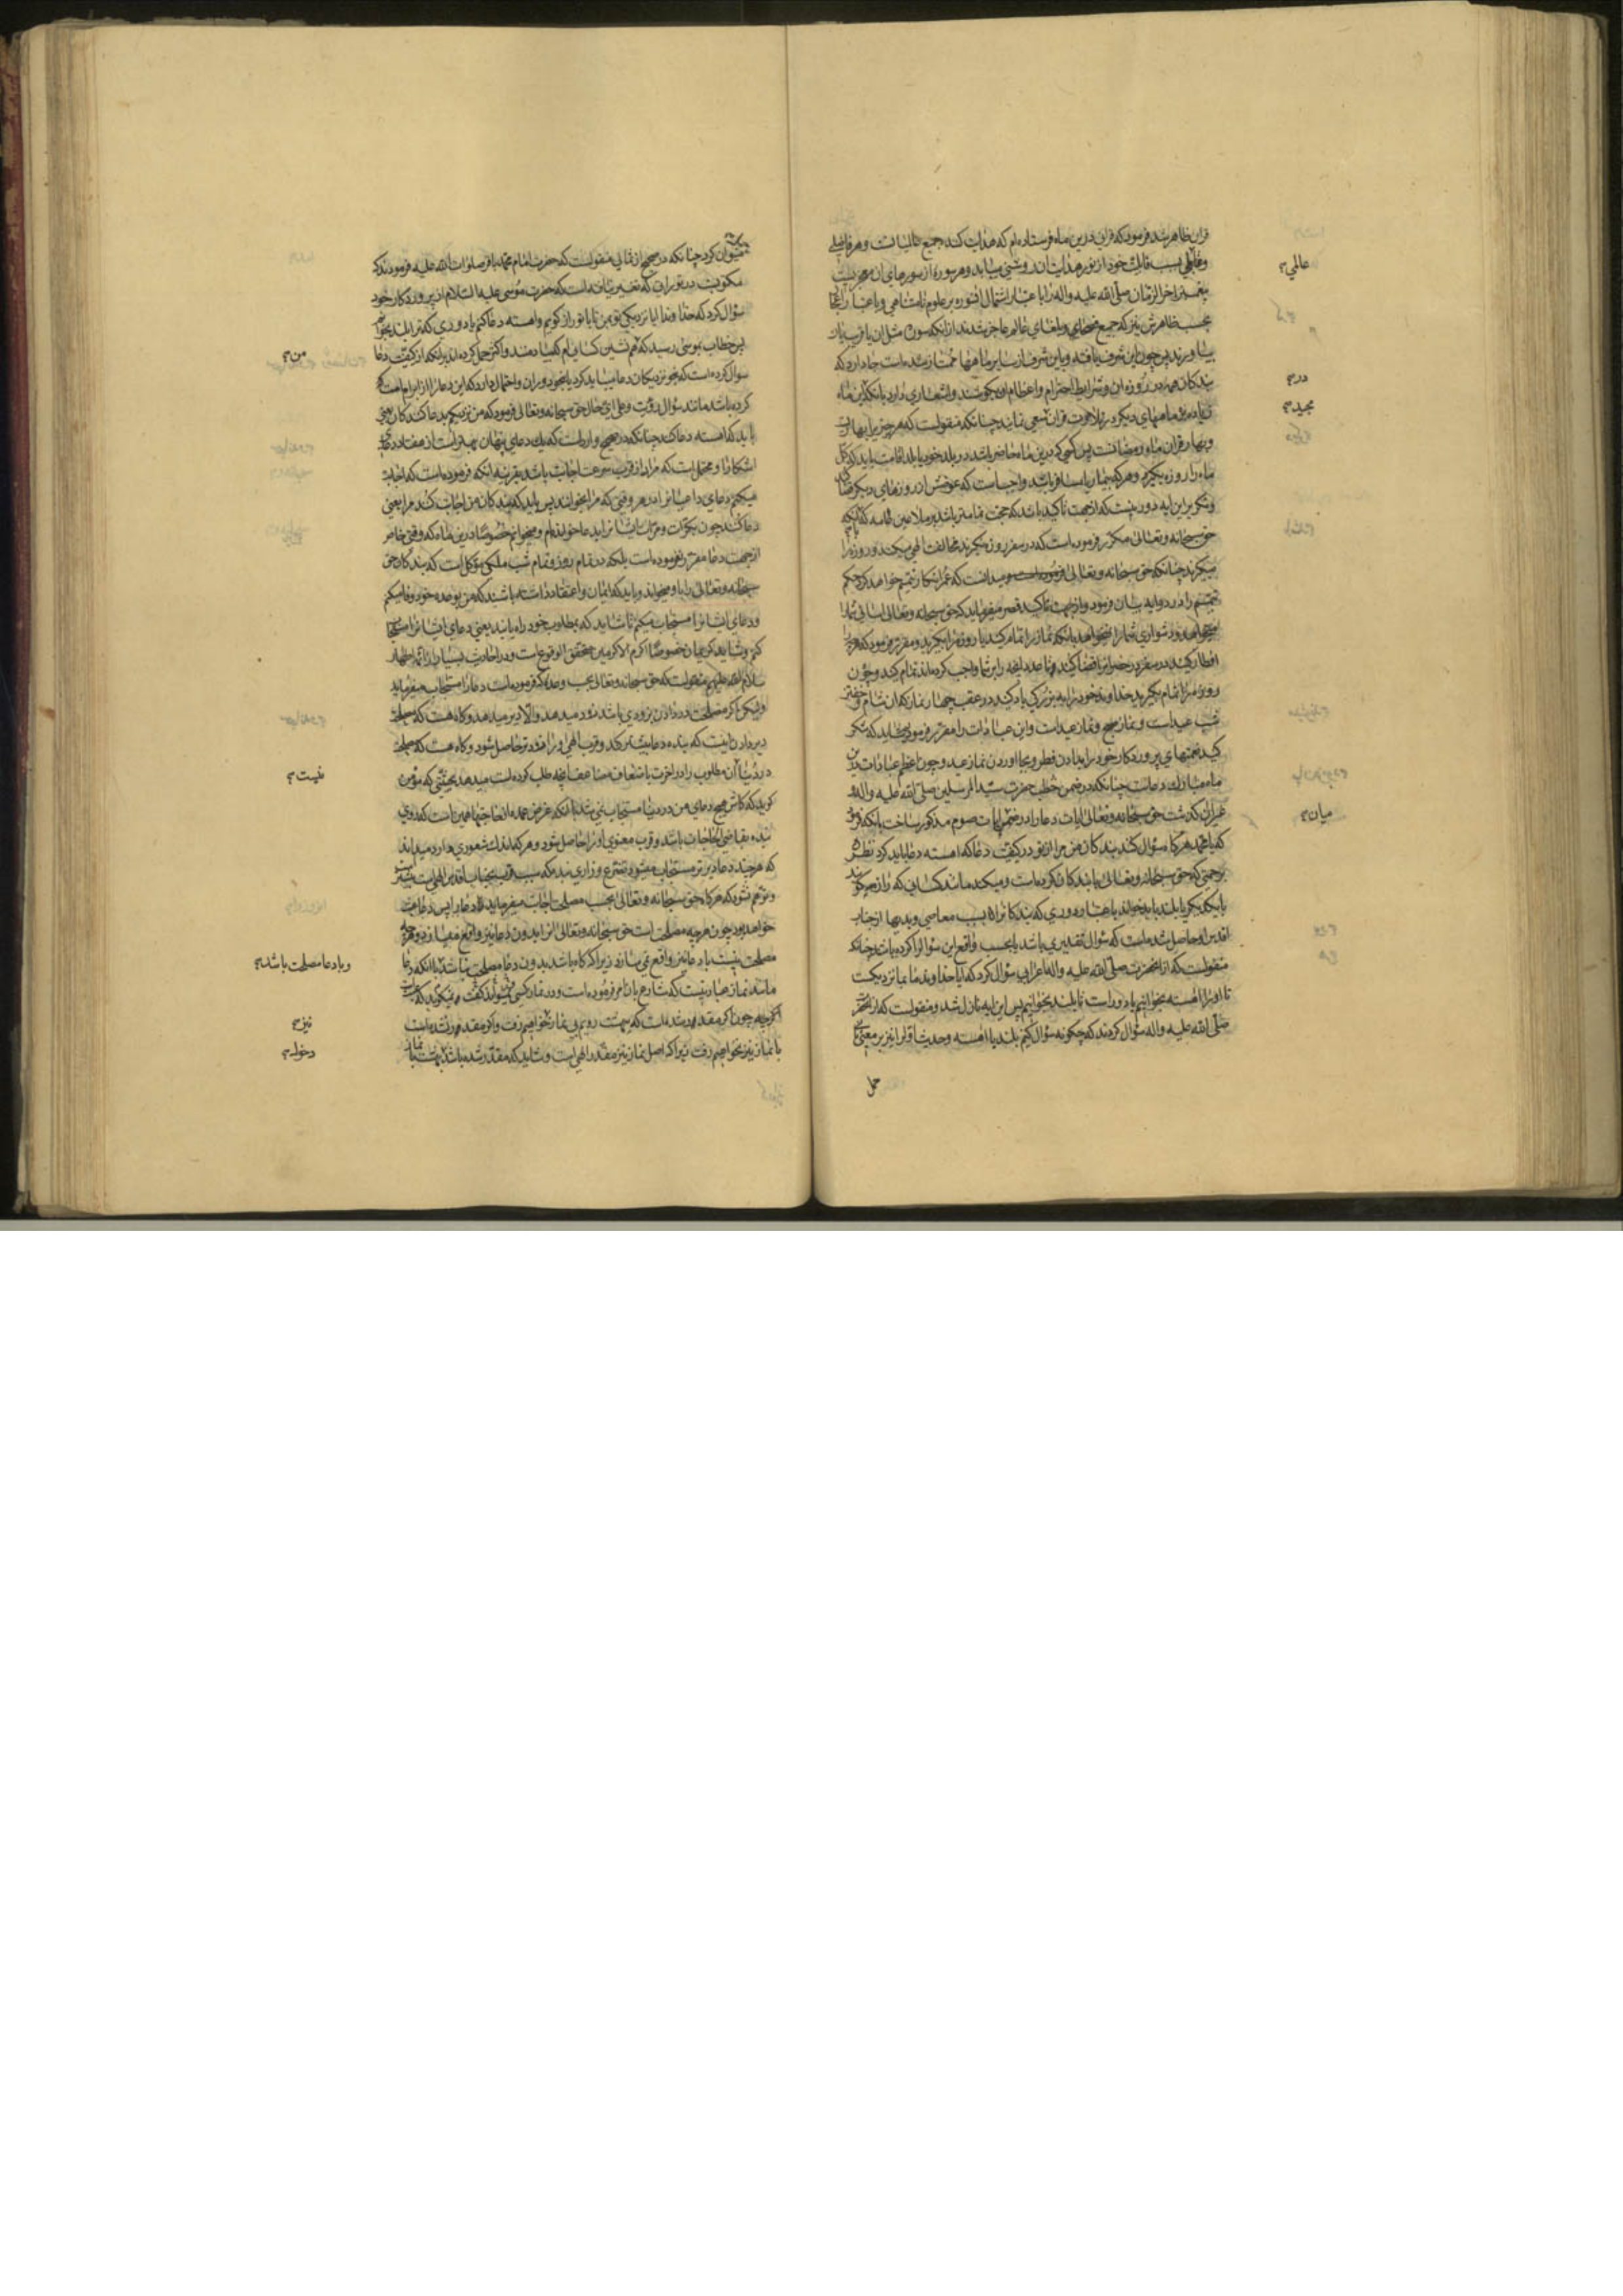 قران ظاهر شد فرمود که قران درین ماه فرستاده‌ام که هدایت کند جمیع عالمیانست و هر فاضلی
و عالمی بسبب قابلیت خود از نور هدایت آن روشنی مییابد و هر سوره از سورهای آن معجزیست
پیغمبر اخر الزمان صلی الله علیه واله را با عتبار اشتمال انسوره بر علوم نامتناهی و باعتبار اعجاز
بحسب ظاهرش نیز که جمیع فصحای و بلغای عالم عاجز شدند از انکه سوره مثل ان یا قریب بان
بیاورند پس چون این شرف یافته و باین شرف از سایر ماهها ممتاز شده است جا دارد که
بندکان همه در روزه این و شرایط احترام و اعظام او بکوشند و اشعاری دارد بانکه این ماه
زیاده بر ماههای دیکر در تلاوت قران سعی نمایند چنانکه منقولست که هر چیز را بهاریست
و بهار قران ماه رمضانست پس کسی که درین ماه حاضر باشد در بلد خود یا بلد اقامت باید که کل
ماه را روزه بکیرد و هر که بیمار یا مسافر باشد واجبست که عوضش از روزهای دیکر قضا کند
و تکریر این ایه دور نیست که از جهت تاکید باشد که حجت تمامتر باشد بر ملاعین عامه که با انکه
حق سبحانه وتعالی مکرر فرموده است که در سفر روزه مکیرید مخالفت الهی میکنند و روزه را
میکیرند چنانکه حق سبحانه وتعالی فرموده است و میدانست که عمر انکار تیمم خواهد کرد حکم
تیمم را در دو ایه بیان فرمود و از جهت تاکید قصر میفرماید که حق سبحانه وتعالی اسانی شما را
میخواهد و دشواری شما را نمیخواهد بانکه نماز را تمام کنید یا روزه را بکیرید و مقرر فرمود که هر چه
افطار کنید در سفر در حضر انرا قضا کنید تا عدد ایچه را بر شما واجب کرده‌اند تمام کنید و چون
روزه را تمام بکیرید خداوند خود را به بزرکی یاد کنید در عقب چهار نماز که ان شام و خفتن
شب عیدست و نماز صبح و نماز عیدست و این عبادات را مقرر فرمود که شاید که شکر
کنید نعمتهای پروردکار خود را بدادن فطره و بجا اوردن نماز عید و چون اعظم عبادات درین
ماه مبارک دعاست چنانکه در ضمن خطب حضرت سید المرسلین صلی الله علیه واله
که یا محمد هرکاه سؤال کنند بندکان من مرا از تو در کیفیت دعا که اهسته دعا باید کرد نظر
برحمتی که حق سبحانه وتعالی با بندکان کرده است و میکند مانند کسانی که راز میکویند
با یکدیکر یا بلند باید خواند باعتبار دوری که بندکانرا بسبب معاصی و بدیها از جناب
اقدس او حاصل شده است که سؤال تقدیری باشد یا بحسب واقع این سؤال را کرده باشند چنانکه
منقولست که از انحضرت صلی الله علیه واله اعرابی سؤال کرد که ایا خداوند ما بما نزدیکست
تا او را اهسته بخوانیم یا دور است تا بلند بخوانیم پس این ایه نازل شد و منقولست که از انحضرت
صلی الله علیه واله سؤال کردند که چکونه سؤال کنیم بلند یا اهسته و حدیث اول را نیز برین معنی
حمل
عالمی
در
مجید
میان
میتوان کرد چنانکه در صحیح از ثمالی منقولست که حضرت امام محمد باقر صلوات الله علیه فرمودند که
مکتوبست در تورایی که تغییر نیافته است که حضرت موسی علیه السلام از پروردکار خود
سؤال کرد که خداوندا ایا نزدیکی تو بمن تا با تو راز کویم و اهسته دعا کنم یا دوری که ترا بلند بخوانم
پس خطاب بموسی رسید که من همنشین کسانی‌ام که مرا یاد کنند و اکثر حمل کرده‌اند بر انکه از کیفیت دعا
سوال کرده است که بنحو نزدیکان دعا میباید کرد یا بنحو دوران و احتمال دارد که این دعا را از برای امت
کرده باشد مانند سؤال رؤیت و علی ای حال حق سبحانه وتعالی فرمود که من نزدیکم بدعا کنندکان یعنی
باید که اهسته دعا کنند چنانکه در صحیح واردست که یک دعای پنهان بهتر است از هفتاد دعای
اشکارا و محتمل است که مراد از قرب سرعت اجابت باشد بقرینه انکه فرموده است که اجابت
میکنم دعای داعیانرا در هر وقتی که مرا بخوانند پس باید که بندکان من اجابت کنند مرا یعنی
دعا کنند چون بکرات و مرات ایشانرا بدعا خوانده‌ام و میخوانم خصوصا درین ماه که وقتی خاص
از جهت دعا مقرر نفرموده است بلکه در تمام روز و تمام شب ملکی موکل است که بندکان حق
سبحانه وتعالی را باو میخواند و باید که ایمان و اعتقاد داشته باشند که من بوعده خود وفا میکنم
و دعای ایشانرا مستجاب میکنم تا شاید که بمطلوب خود راه یابند یعنی دعای ایشانرا مستجاب
کنم و شاید کریمان خصوصا اکرم الاکرمین محقق الوقوع است و در احادیث بسیار از ائمه اطهار
سلام الله علیهم منقولست که حق سبحانه وتعالی بحسب وعده که فرموده است دعا را مستجاب میفرماید
ولیکن اکر مصلحت در دادن بزودی باشد زود میدهد والا دیر میدهد و کاه هست که مصلحت
دیر دادن اینست که بنده دعا بیشتر کند و قرب الهی او را زودتر حاصل شود و کاه هست که مصلحت
در دنیا آن مطلوب را در اخرت باضعاف مضاعف انچه طلب کرده است میدهد بحیثیتی که مؤمن
کوید که کاش هیچ دعای من در دنیا مستجاب نمی‌شد با انکه غرض عمده از حاجتها همین است که روی
بنده بقاضی الحاجات باشد و قرب معنوی او را حاصل شود و هر که اندک شعوری دارد میداند
که هر چند دعا دیرتر مستجاب میشود تضرع و زاری بنده که سبب قرب بجناب اقدس الهی است بیشتر
و توهم نشود که هرکاه حق سبحانه وتعالی بحسب مصلحت اجابت میفرماید دعا را پس دعا عبث
خواهد بود چون هرچه مصلحت است حق سبحانه وتعالی انرا بدون دعا نیز واقع میسازد و هرچه
مصلحت نیست با دعا نیز واقع نمی‌سازد زیرا که کاه باشد بدون دعا مصلحت نباشد با انکه دعا
مانند نماز عبادتیست که شارع بان امر فرموده است و در نماز کسی نمیتواند کفت
اکرچه چون اکر مقدر شده است که ببهشت رویم بی نماز خواهیم رفت و اکر مقدر نشده است
با نماز نیز نخواهیم رفت زیرا که اصل نماز نیز مقدر الهی است و شاید که مقدر شده باشد بهشت با نماز
من
نیست
و با دعا مصلحت باشد
نیز
دخول